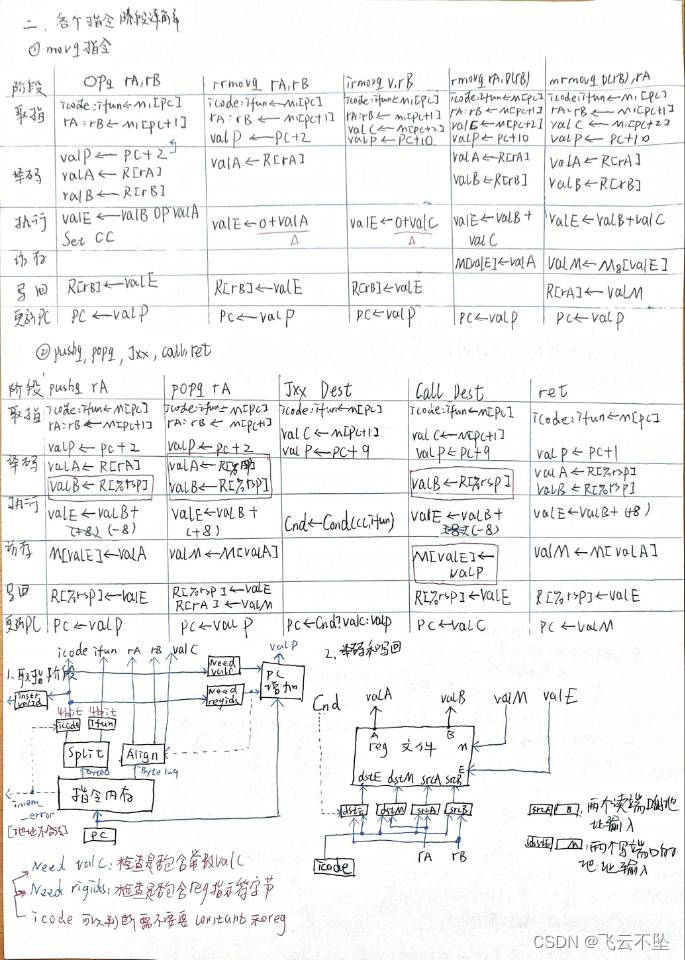 二、各个指令阶段详解
① movq指令
阶段 OPq rA,rB rrmovq rA,rB irmovq V,rB rmovq rA,D(rB) mrmovq D(rB),rA
取指 icode:ifun←M1[PC] icode:ifun←M1[PC] icode:ifun←M1[PC] icode:ifun←M1[PC] icode:ifun←M1[PC]
rA:rB←M1[PC+1] rA:rB←M1[PC+1] rA:rB←M1[PC+1] rA:rB←M1[PC+1] rA:rB←M1[PC+1]
valP←PC+2 valC←M[PC+2] valE←M[PC+2] valC←M1[PC+2]
valP←PC+10 valP←PC+10 valP←PC+10
valP←PC+2
译码 valA←R[rA] valA←R[rA] valA←R[rA] valA←R[rA]
valB←R[rB] valB←R[rB] valB←R[rB]
执行 valE←valB OP valA valE←0+valA valE←0+valC valE←valB+ valE←valB+valC
Set CC valC
访存 M[valE]←valA valM←M8[valE]
写回 R[rB]←valE R[rB]←valE R[rB]←valE R[rA]←valM
更新PC PC←valP PC←valP PC←valP PC←valP PC←valP
② pushq, popq, Jxx, call, ret
阶段 pushq rA popq rA Jxx Dest Call Dest ret
取指 icode:ifun←M[PC] icode:ifun←M[PC] icode:ifun←M[PC] icode:ifun←M[PC] icode:ifun←M[PC]
rA:rB←M[PC+1] rA:rB←M[PC+1] valC←M[PC+1] valC←M[PC+1]
valP←PC+2 valP←PC+2 valP←PC+9 valP←PC+9 valP←PC+1
译码 valA←R[rA] valA←R[%rsp] valA←R[%rsp]
valB←R[%rsp] valB←R[%rsp] valB←R[%rsp] valB←R[%rsp]
执行 valE←valB+ valE←valB+ Cnd←Cond(CC,ifun) valE←valB+ valE←valB+(+8)
(+8)(-8) (+8) (+8)(-8)
访存 M[valE]←valA valM←M[valA] M[valE]← valM←M[valA]
valP
写回 R[%rsp]←valE R[%rsp]←valE R[%rsp]←valE R[%rsp]←valE
R[rA]←valM
更新PC PC←valP PC←valP PC←Cnd?valC:valP PC←valC PC←valM
icode ifun rA rB valC valP
1.取指阶段
Need valC
PC增加
instr valid
Need regids
4bit 4bit
icode ifun
Split Align
Byte0 Byte1n9
指令内存
imem_error
[地址不合法]
PC
Need valC:检查是否包含常数valC
Need rigids:检查是否包含reg指示符字节
icode可以判断需不需要constant和reg
2、译码和写回
Cnd valA valB valM valE
A B
reg 文件 M
E
dstE dstM srcA srcB
dstE dstM srcA srcB
icode rA rB
srcA B :两个读端口的地址输入
dstE M :两个写端口的地址输入
CSDN @飞云不坠